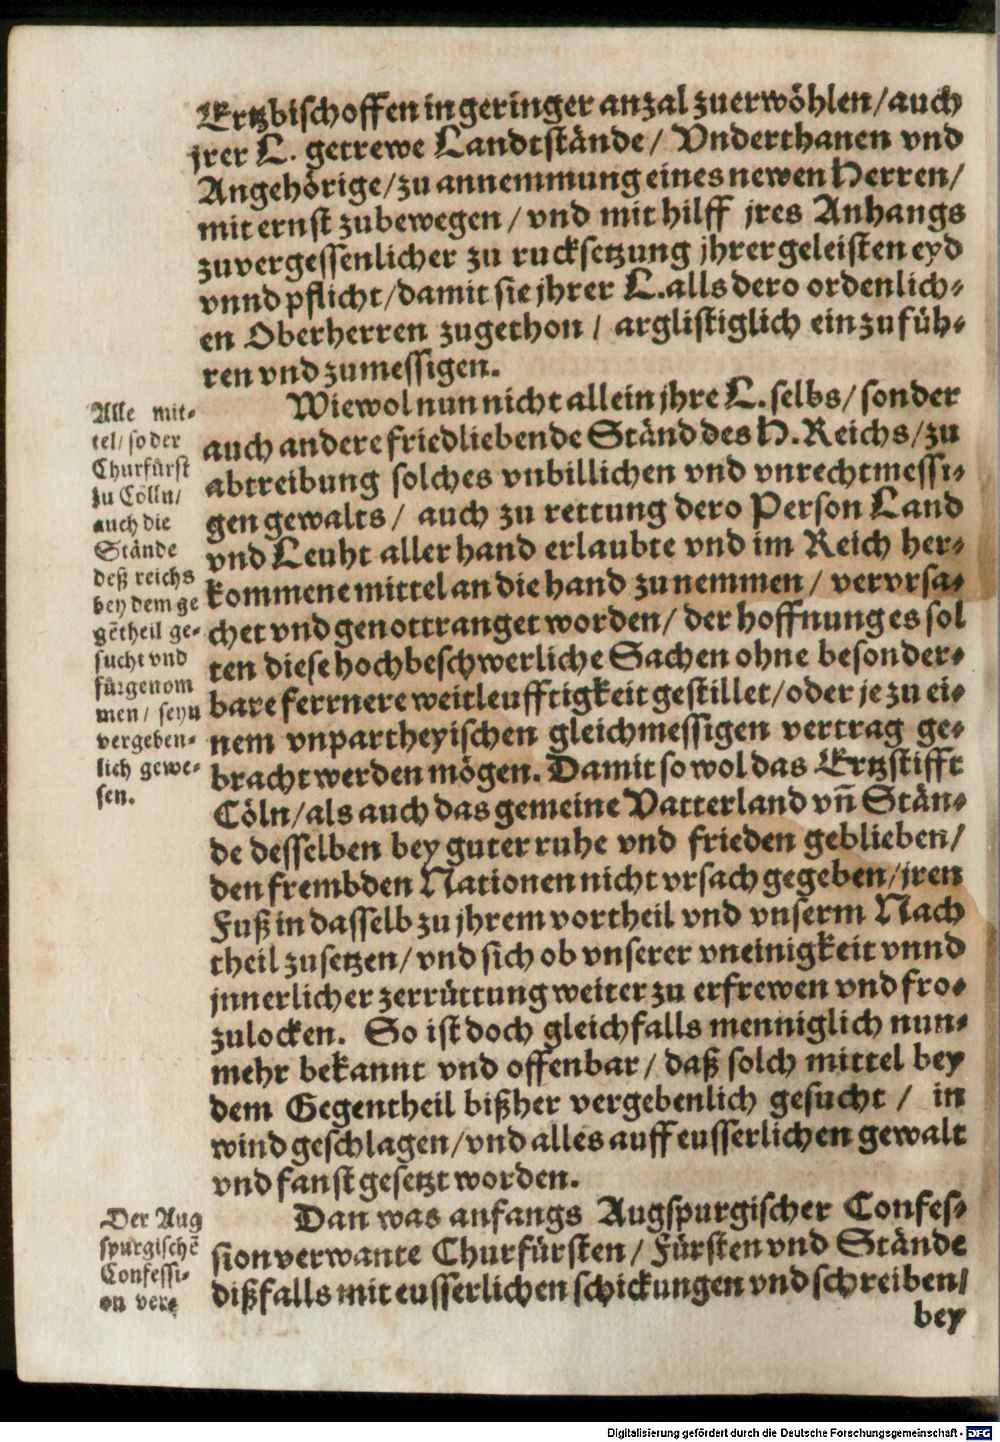 Ertzbischoffen in geringer anzal zuerwöhlen/auch
jrer L. getrewe Landtstände/ Vnderthanen vnd
Angehörige/zu annemmung eines newen Herren/
mit ernst zubewegen/ vnd mit hilff jres Anhangs
zuvergessenlicher zu rucksetzung jhrer geleisten eyd
vnnd pflicht/damit sie jhrer L. alls dero ordenlich-
en Oberherren zugethon/ arglistiglich einzufüh-
ren vnd zumessigen.
Wiewol nun nicht allein jhre L. selbs/ sonder
auch andere friedliebende Ständ des H. Reichs/zu
abtreibung solches vnbillichen vnd vnrechtmessi-
gen gewalts/ auch zu rettung dero Person Land
vnd Leuht aller hand erlaubte vnd im Reich her-
kommene mittel an die hand zu nemmen/ vervrsa-
chet vnd genottranget worden/ der hoffnung es sol
ten diese hochbeschwerliche Sachen ohne besonder-
bare ferrnere weitleufftigkeit gestillet/oder je zu ei-
nem vnpartheyischen gleichmessigen vertrag ge-
bracht werden mögen. Damit so wol das Ertzstifft
Cöln/als auch das gemeine Vatterland vñ Stän-
de desselben bey guter ruhe vnd frieden geblieben/
den frembden Nationen nicht vrsach gegeben/jren
Fuß in dasselb zu jhrem vortheil vnd vnserm Nach
theil zusetzen/vnd sich ob vnserer vneinigkeit vnnd
jnnerlicher zerrüttung weiter zu erfrewen vnd fro-
zulocken. So ist doch gleichfalls menniglich nun-
mehr bekannt vnd offenbar/ daß solch mittel bey
dem Gegentheil bißher vergebenlich gesucht/ in
wind geschlagen/vnd alles auff eusserlichen gewalt
vnd fanst gesetzt worden.
Dan was anfangs Augspurgischer Confes-
sion verwante Churfürsten/ Fürsten vnd Stände
dißfalls mit eusserlichen schickungen vnd schreiben/
bey
Alle mit-
tel/ so der
Churfürst
zu Cölln/
auch die
Stände
deß reichs
bey dem ge
gētheil ge-
sucht vnd
fürgenom
men/ seyn
vergeben-
lich gewe-
sen.
Der Aug
spurgischē
Confessi-
on ver-
Digitalisierung gefördert durch die Deutsche Forschungsgemeinschaft - DFG